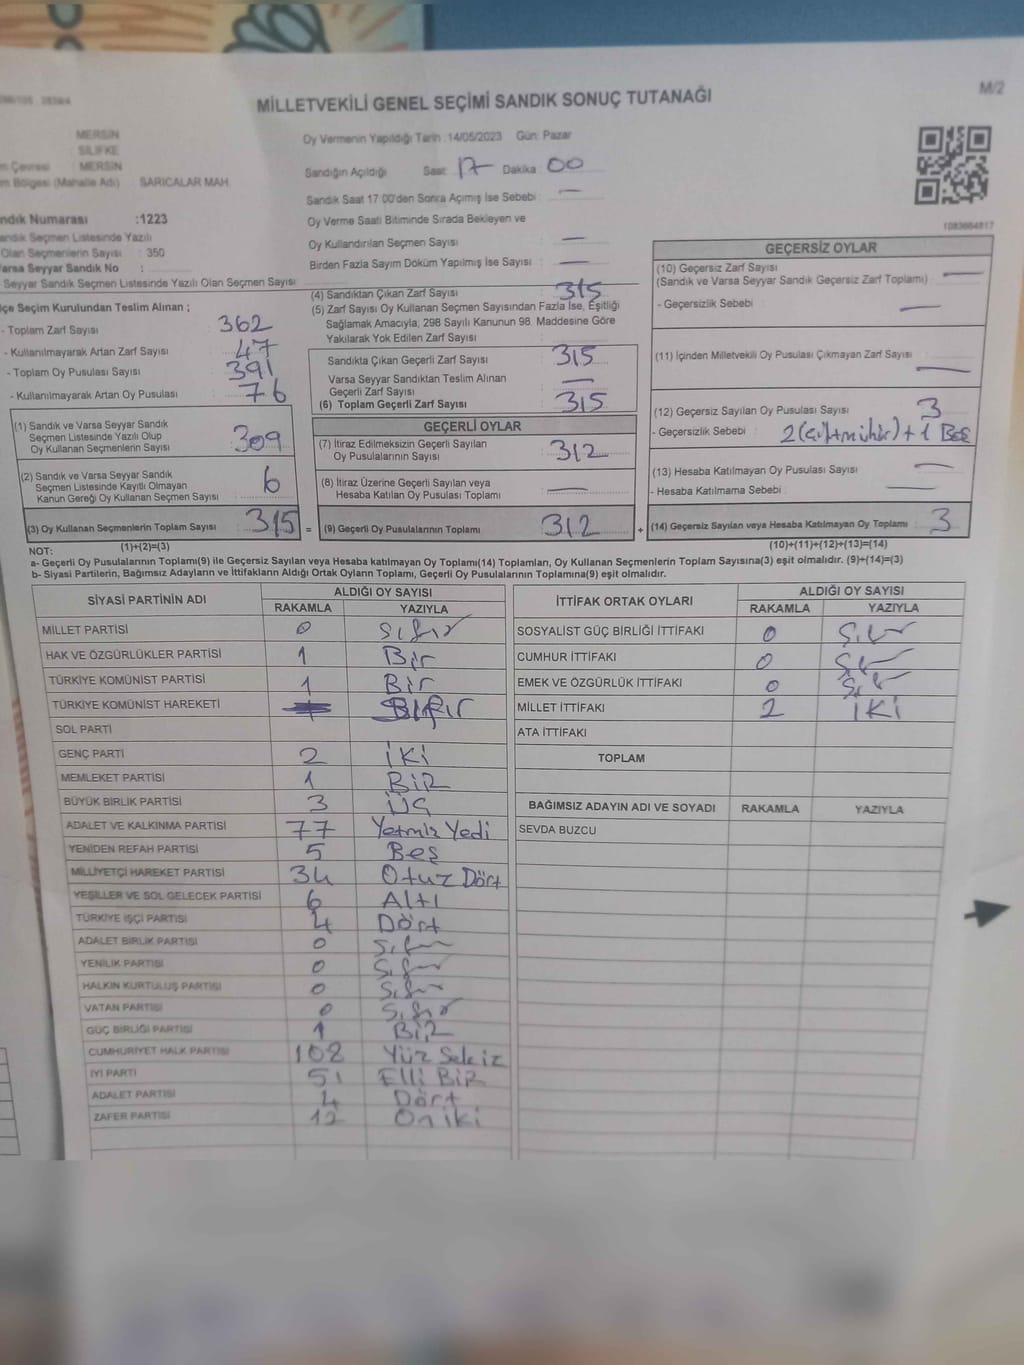 MİLLETVEKİLİ GENEL SEÇİMİ SANDIK SONUÇ TUTANAĞI
M/2
MERSİN
SİLİFKE
m Çevresi : MERSİN
m Bölgesi (Mahalle Adı) SARICALAR MAH.
ndık Numarası :1223
andık Seçmen Listesinde Yazılı
Olan Seçmenlerin Sayısı : 350
arsa Seyyar Sandık No :
Seyyar Sandık Seçmen Listesinde Yazılı Olan Seçmen Sayısı
Oy Vermenin Yapıldığı Tarih :14/05/2023 Gün: Pazar
Sandığın Açıldığı Saat: 17 Dakika: 00
Sandık Saat 17:00'den Sonra Açımış İse Sebebi : —
Oy Verme Saati Bitiminde Sırada Bekleyen ve
Oy Kullandırılan Seçmen Sayısı : —
Birden Fazla Sayım Döküm Yapılmış İse Sayısı : —
1083664817
çe Seçim Kurulundan Teslim Alınan ;
- Toplam Zarf Sayısı 362
- Kullanılmayarak Artan Zarf Sayısı 47
- Toplam Oy Pusulası Sayısı 391
- Kullanılmayarak Artan Oy Pusulası 76
(1) Sandık ve Varsa Seyyar Sandık
Seçmen Listesinde Yazılı Olup
Oy Kullanan Seçmenlerin Sayısı 309
(2) Sandık ve Varsa Seyyar Sandık
Seçmen Listesinde Kayıtlı Olmayan
Kanun Gereği Oy Kullanan Seçmen Sayısı 6
(3) Oy Kullanan Seçmenlerin Toplam Sayısı 315 =
(1)+(2)=(3)
(4) Sandıktan Çıkan Zarf Sayısı : 315
(5) Zarf Sayısı Oy Kullanan Seçmen Sayısından Fazla İse, Eşitliği
Sağlamak Amacıyla, 298 Sayılı Kanunun 98. Maddesine Göre
Yakılarak Yok Edilen Zarf Sayısı :
Sandıkta Çıkan Geçerli Zarf Sayısı 315
Varsa Seyyar Sandıktan Teslim Alınan
Geçerli Zarf Sayısı —
(6) Toplam Geçerli Zarf Sayısı 315
GEÇERLİ OYLAR
(7) İtiraz Edilmeksizin Geçerli Sayılan
Oy Pusulalarının Sayısı 312
(8) İtiraz Üzerine Geçerli Sayılan veya
Hesaba Katılan Oy Pusulası Toplamı —
(9) Geçerli Oy Pusulalarının Toplamı 312 +
GEÇERSİZ OYLAR
(10) Geçersiz Zarf Sayısı
(Sandık ve Varsa Seyyar Sandık Geçersiz Zarf Toplamı) : —
- Geçersizlik Sebebi : —
(11) İçinden Milletvekili Oy Pusulası Çıkmayan Zarf Sayısı : —
(12) Geçersiz Sayılan Oy Pusulası Sayısı : 3
- Geçersizlik Sebebi : 2 + 1 Boş
(13) Hesaba Katılmayan Oy Pusulası Sayısı : —
- Hesaba Katılmama Sebebi : —
(14) Geçersiz Sayılan veya Hesaba Katılmayan Oy Toplamı 3
(10)+(11)+(12)+(13)=(14)
NOT:
a- Geçerli Oy Pusulalarının Toplamı(9) ile Geçersiz Sayılan veya Hesaba katılmayan Oy Toplamı(14) Toplamları, Oy Kullanan Seçmenlerin Toplam Sayısına(3) eşit olmalıdır. (9)+(14)=(3)
b- Siyasi Partilerin, Bağımsız Adayların ve İttifakların Aldığı Ortak Oyların Toplamı, Geçerli Oy Pusulalarının Toplamına(9) eşit olmalıdır.
SİYASİ PARTİNİN ADI ALDIĞI OY SAYISI
RAKAMLA YAZIYLA
MİLLET PARTİSİ 0 Sıfır
HAK VE ÖZGÜRLÜKLER PARTİSİ 1 Bir
TÜRKİYE KOMÜNİST PARTİSİ 1 Bir
TÜRKİYE KOMÜNİST HAREKETİ
SOL PARTİ
GENÇ PARTİ 2 İKİ
MEMLEKET PARTİSİ 1 BİR
BÜYÜK BİRLİK PARTİSİ 3 ÜÇ
ADALET VE KALKINMA PARTİSİ 77 Yetmiş Yedi
YENİDEN REFAH PARTİSİ 5 Beş
MİLLİYETÇİ HAREKET PARTİSİ 34 Otuz Dört
YEŞİLLER VE SOL GELECEK PARTİSİ 6 Altı
TÜRKİYE İŞÇİ PARTİSİ 4 Dört
ADALET BİRLİK PARTİSİ 0 Sıfır
YENİLİK PARTİSİ 0 Sıfır
HALKIN KURTULUŞ PARTİSİ 0 Sıfır
VATAN PARTİSİ 0 Sıfır
GÜÇ BİRLİĞİ PARTİSİ 1 BİR
CUMHURİYET HALK PARTİSİ 108 Yüz Sekiz
İYİ PARTİ 51 Elli BİR
ADALET PARTİSİ 4 Dört
ZAFER PARTİSİ 12 On iki
İTTİFAK ORTAK OYLARI ALDIĞI OY SAYISI
RAKAMLA YAZIYLA
SOSYALİST GÜÇ BİRLİĞİ İTTİFAKI 0 Sıfır
CUMHUR İTTİFAKI 0 Sıfır
EMEK VE ÖZGÜRLÜK İTTİFAKI 0 Sıfır
MİLLET İTTİFAKI 2 İKİ
ATA İTTİFAKI
TOPLAM
BAĞIMSIZ ADAYIN ADI VE SOYADI RAKAMLA YAZIYLA
SEVDA BUZCU